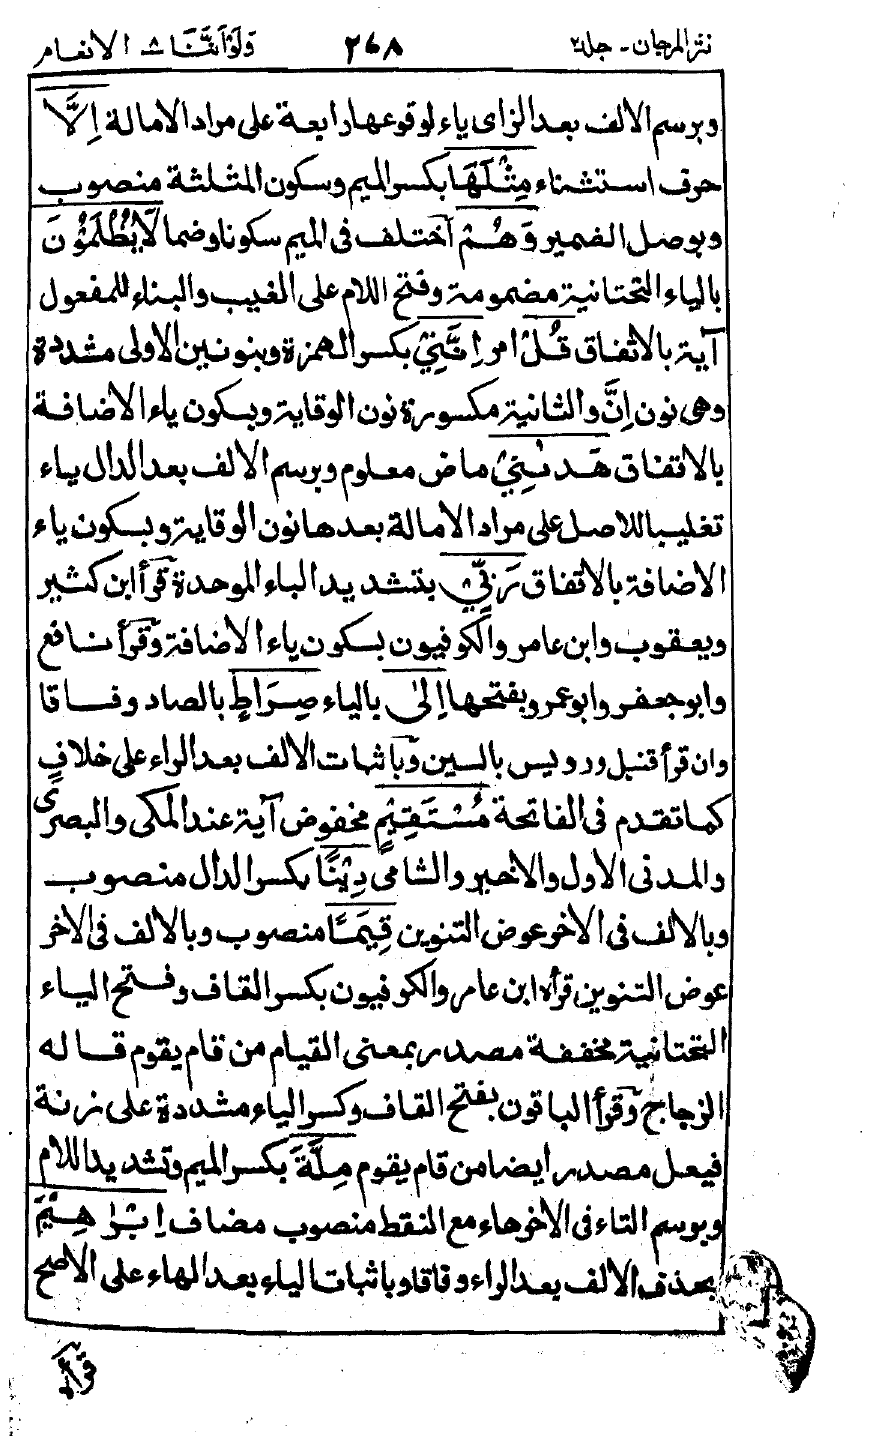 نثر المرجان - جلد٢ ٢٦٨ ولو أننا ٨ الانعام
وبرسم الالف بعد الزاى ياء لوقوعها رابعة على مراد الامالة اِلَّا
حرف استثناء مِثْلَهَا بكسر الميم وسكون المثلثة منصوب
وبوصل الضمير وَهُمْ اختلف فى الميم سكونا وضما لَا يُظْلَمُوْنَ
بالياء التحتانية مضمومة وفتح اللام على الغيب والبناء للمفعول
آية بالاتفاق قُلْ امر اِنَّنِيْ بكسر الهمزة وبنونين الاولى مشددة
وهى نون اِنَّ والثانية مكسورة نون الوقاية وبسكون ياء الاضافة
بالاتفاق هَدٰىنِيْ ماض معلوم وبرسم الالف بعد الدال ياء
تغليبا للاصل على مراد الامالة بعدها نون الوقاية وبسكون ياء
الاضافة بالاتفاق رَبِّيْ بتشديد الباء الموحدة قرأ ابن كثير
ويعقوب وابن عامر والكوفيون بسكون ياء الاضافة وقرأ نافع
وابو جعفر وابو عمرو بفتحها اِلٰى بالياء صِرَاطٍ بالصاد وفاقا
وان قرأ قنبل ورويس بالسين وباثبات الالف بعد الراء على خلاف
كما تقدم فى الفاتحة مُسْتَقِيْمٍ مخفوض آية عند المكى والبصرى
والمدنى الاول والاخير والشامى دِيْنًا بكسر الدال منصوب
وبالالف فى الاخر عوض التنوين قِيَمًا منصوب وبالالف فى الاخر
عوض التنوين قرأه ابن عامر والكوفيون بكسر القاف وفتح الياء
التحتانية مخففة مصدر بمعنى القيام من قام يقوم قاله
الزجاج وقرأ الباقون بفتح القاف وكسر الياء مشددة على زنة
فيعل مصدر ايضا من قام يقوم مِلَّةَ بكسر الميم وتشديد اللام
وبرسم التاء فى الاخر هاء مع النقط منصوب مضاف اِبْرٰهِيْمَ
بحذف الالف بعد الراء وفاقا وباثبات الياء بعد الهاء على الاصح
قرأه